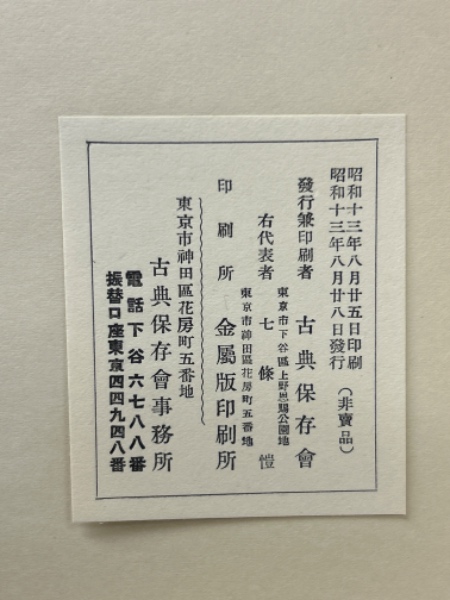 昭和十三年八月廿五日印刷
昭和十三年八月廿八日發行
(非賣品)
發行兼印刷者 古典保存會
東京市下谷區上野恩賜公園地
右代表者 七條愷
東京市神田區花房町五番地
印刷所 金屬版印刷所
東京市神田區花房町五番地
古典保存會事務所
電話下谷六七八八番
振替口座東京四四九四八番